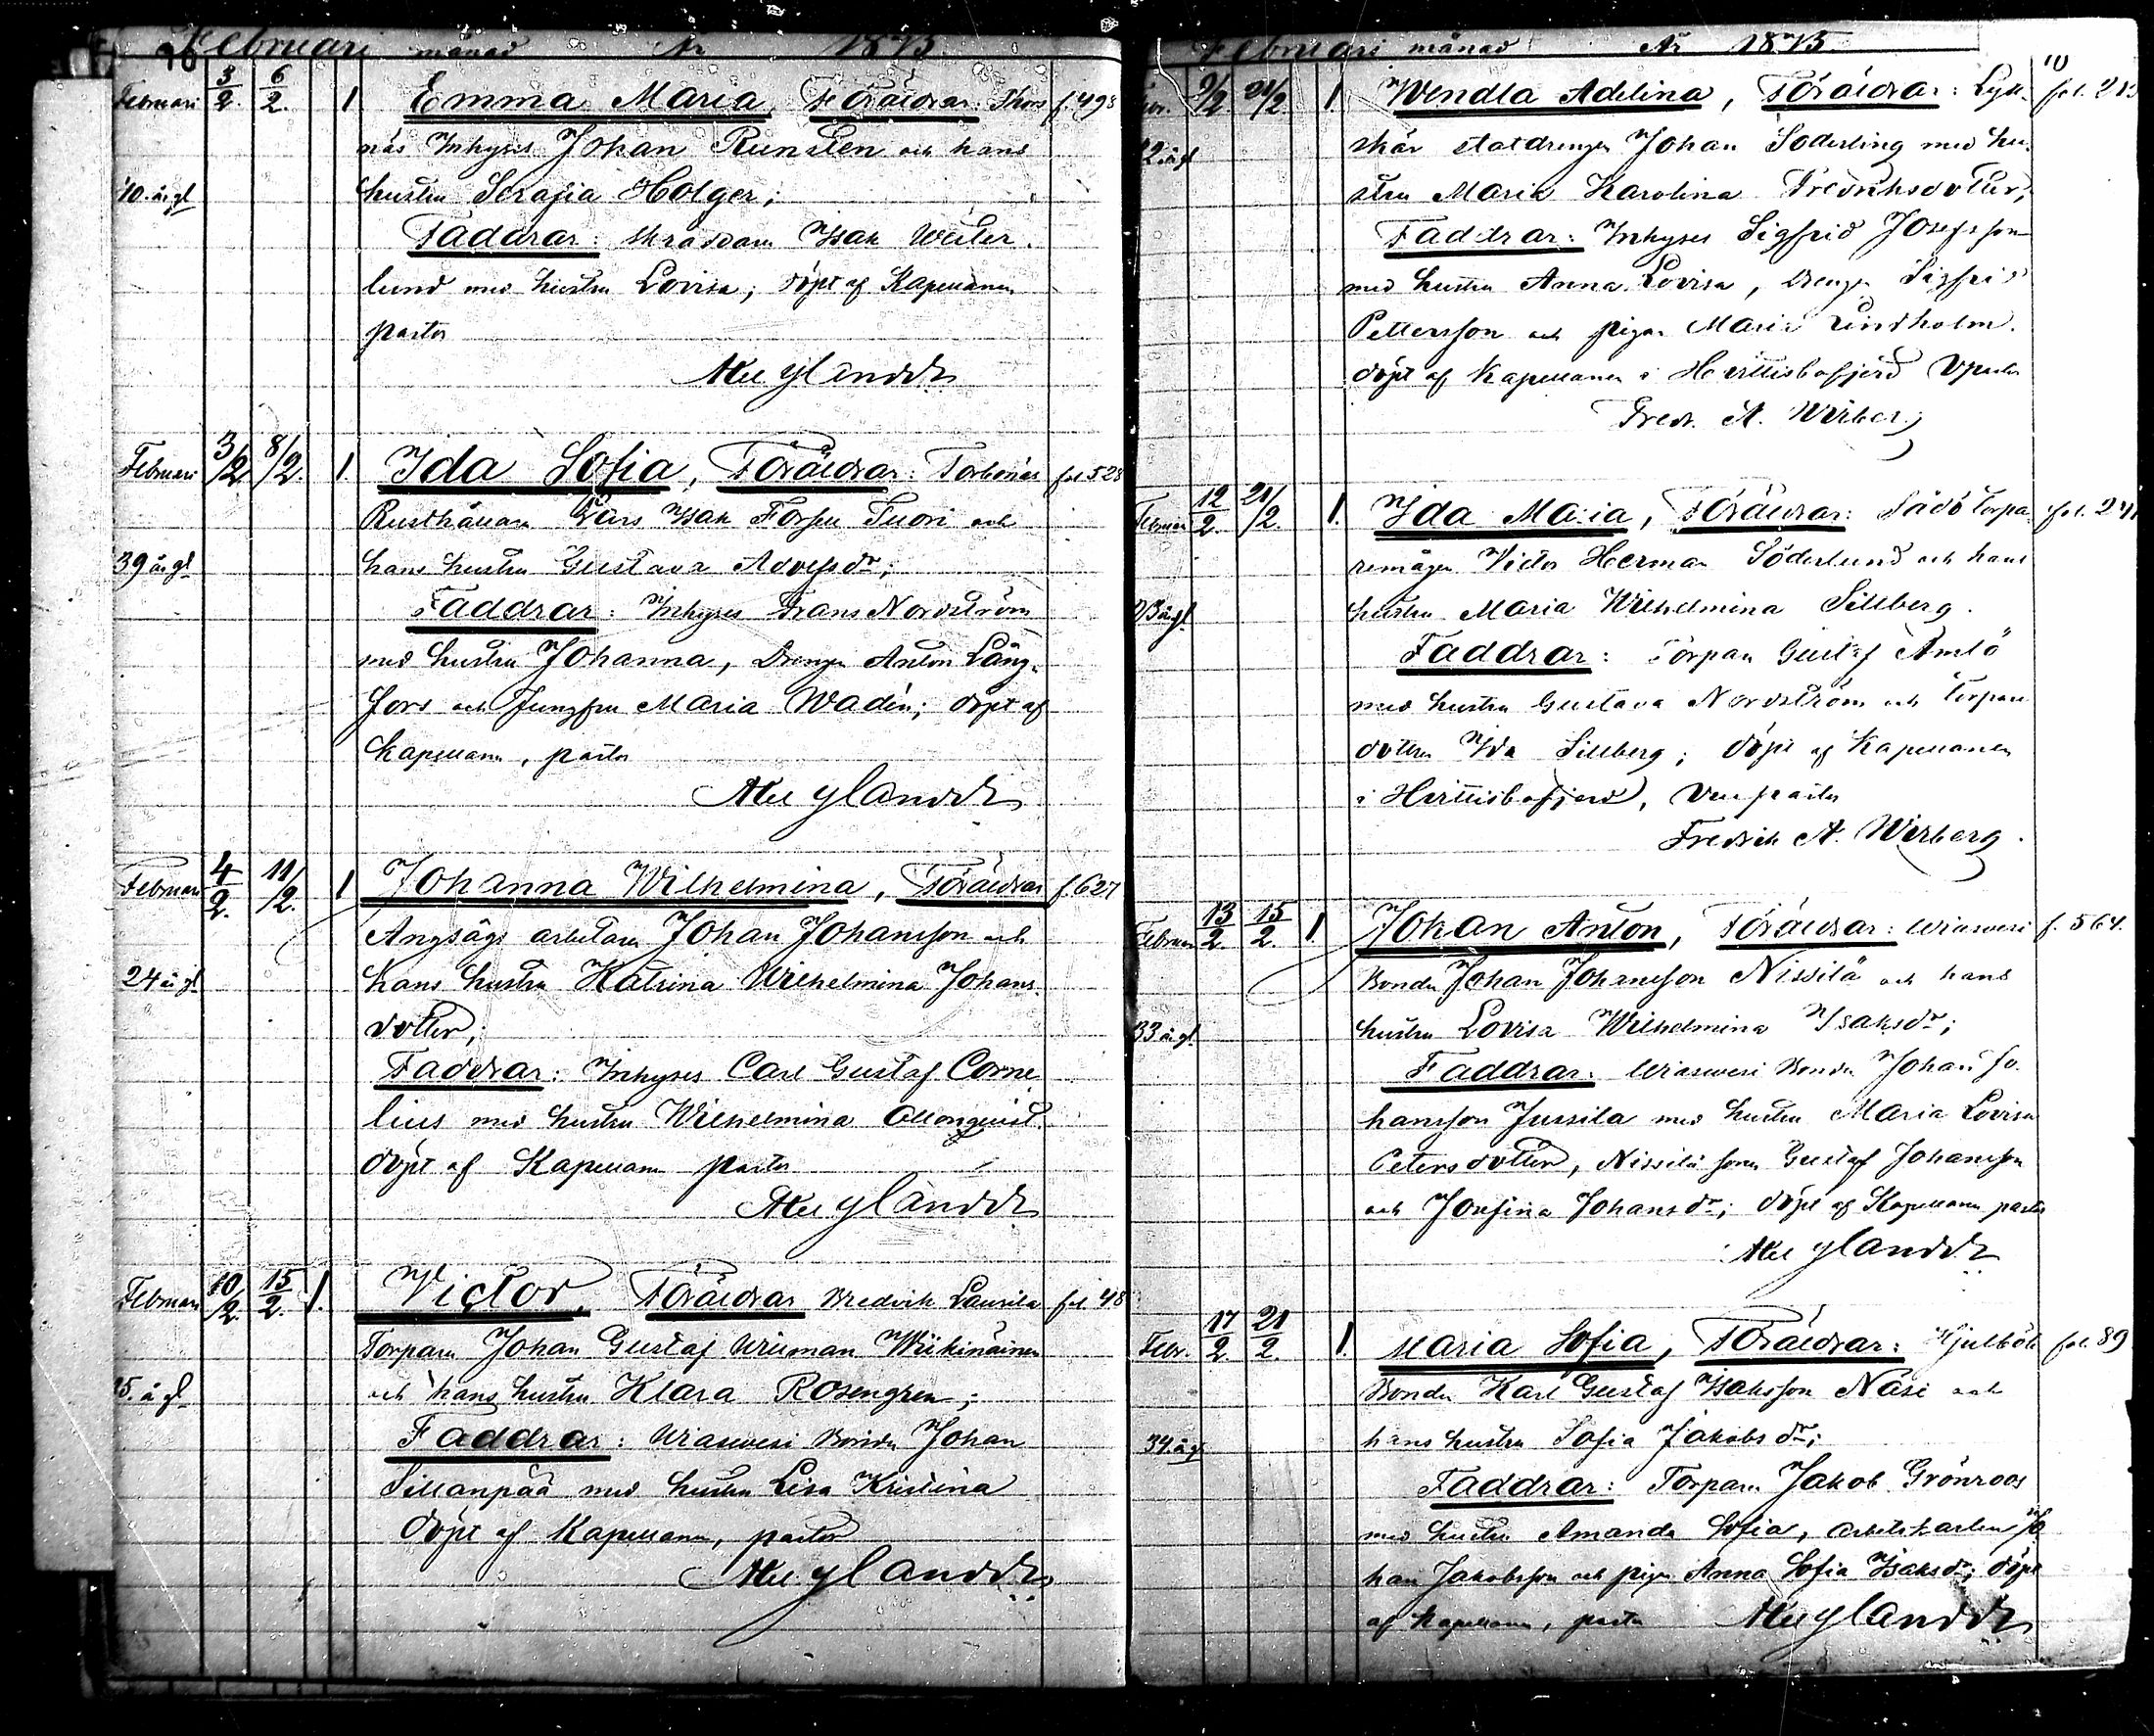 Februari månad År 1875
Februari 3/2. 6/2. 1 Emma Maria, Föräldrar: Thors f. 498
näs Inhyses Johan Runsten och hans
40. år gl hustru Serafia Holger;
Faddrar: skräddaren Isak Wester
lund med hustru Lovisa; döpt af Kapellanen
pastor
Nylander
Februari 3/2. 8/2. 1. Ida Sofia, Föräldrar: Torbonäs fol 528
Rusthållaren Lars Isak Suori och
39 år gl hans hustru Gustava Adolfsdr;
Faddrar: Inhyses Frans Nordström
med hustru Johanna, Drengen Anton Lång-
fors och Jungfru Maria Wadén; döpt af
Kapellanen, pastor
Nylander
Februari 4/2. 11/2. 1 Johanna Wilhelmina, Föräldrar f. 627
Ångsågs arbetaren Johan Johansson och
24 år gl hans hustru Katrina Wilhelmina Johans-
dotter;
Faddrar: Inhyses Carl Gustaf Corne
lius med hustru Wilhelmina
döpt af Kapellanen pastor
Nylander
Februari 10/2. 15/2. 1. Victor, Föräldrar Bredvik Laurila fol 48
Torparen Johan Gustaf Wiikinäinen
25. år gl och hans hustru Klara Rosengren;
Faddrar: Wiasvesi Bonden Johan
Sillanpää med hustru Lisa Kristina
döpt af Kapellanen, pastor
Nylander
Februari månad År 1875
10
Febr. 9/2. 21/2. 1. Wendla Adelina, Föräldrar: Lyk-
skär statdrengen Johan Söderling med hu-
stru Maria Karolina Fredriksdotter;
Faddrar: Inhyses Sigfrid Josefsson
med hustru Anna Lovisa, Drengen Sigfrid
Pettersson och pigan Maria Lindholm.
döpt af Kapellanen i Hvittisbofjerd Vpastor
Fredr. A. Wirberg
Februari 12/2. 21/2. 1. Ida Maria, Föräldrar: Sådö Torpa- fol. 241
remågen Victor Herman Söderlund och hans
hustru Maria Wilhelmina Sillberg.
Faddrar: Torparen Gustaf Amlö
med hustru Gustava Nordström och Torpare
dottren Ida Sillberg; döpt af Kapellanen
i Hvittisbofjerd, Vice pastor
Fredrik A. Wirberg.
Februari 13/2. 15/2. 1. Johan Anton, Föräldrar: Wiasvesi f. 564.
Bonden Johan Johansson Nissilä och hans
33 år gl. hustru Lovisa Wilhelmina Isaksdr;
Faddrar: Wiasvesi Bonden Johan Jo-
hansson Jussila med hustru Maria Lovisa
Petersdotter, Nissilä sonen Gustaf Johansson
och Josefina Johansdr; döpt af Kapellanen pastor
Nylander
Febr. 17/2. 21/2. 1. Maria Sofia, Föräldrar: Hjulböle fol. 89
Bonden Karl Gustaf Isaksson Näsi och
34 år gl hans hustru Sofia Jakobsdr;
Faddrar: Torparen Jakob Grönroos
med hustru Amanda Sofia, arbetskarlen Jo
han Jakobsson och pigan Anna Sofia Isaksdr; döpt
af Kapellanen, pastor Nylander